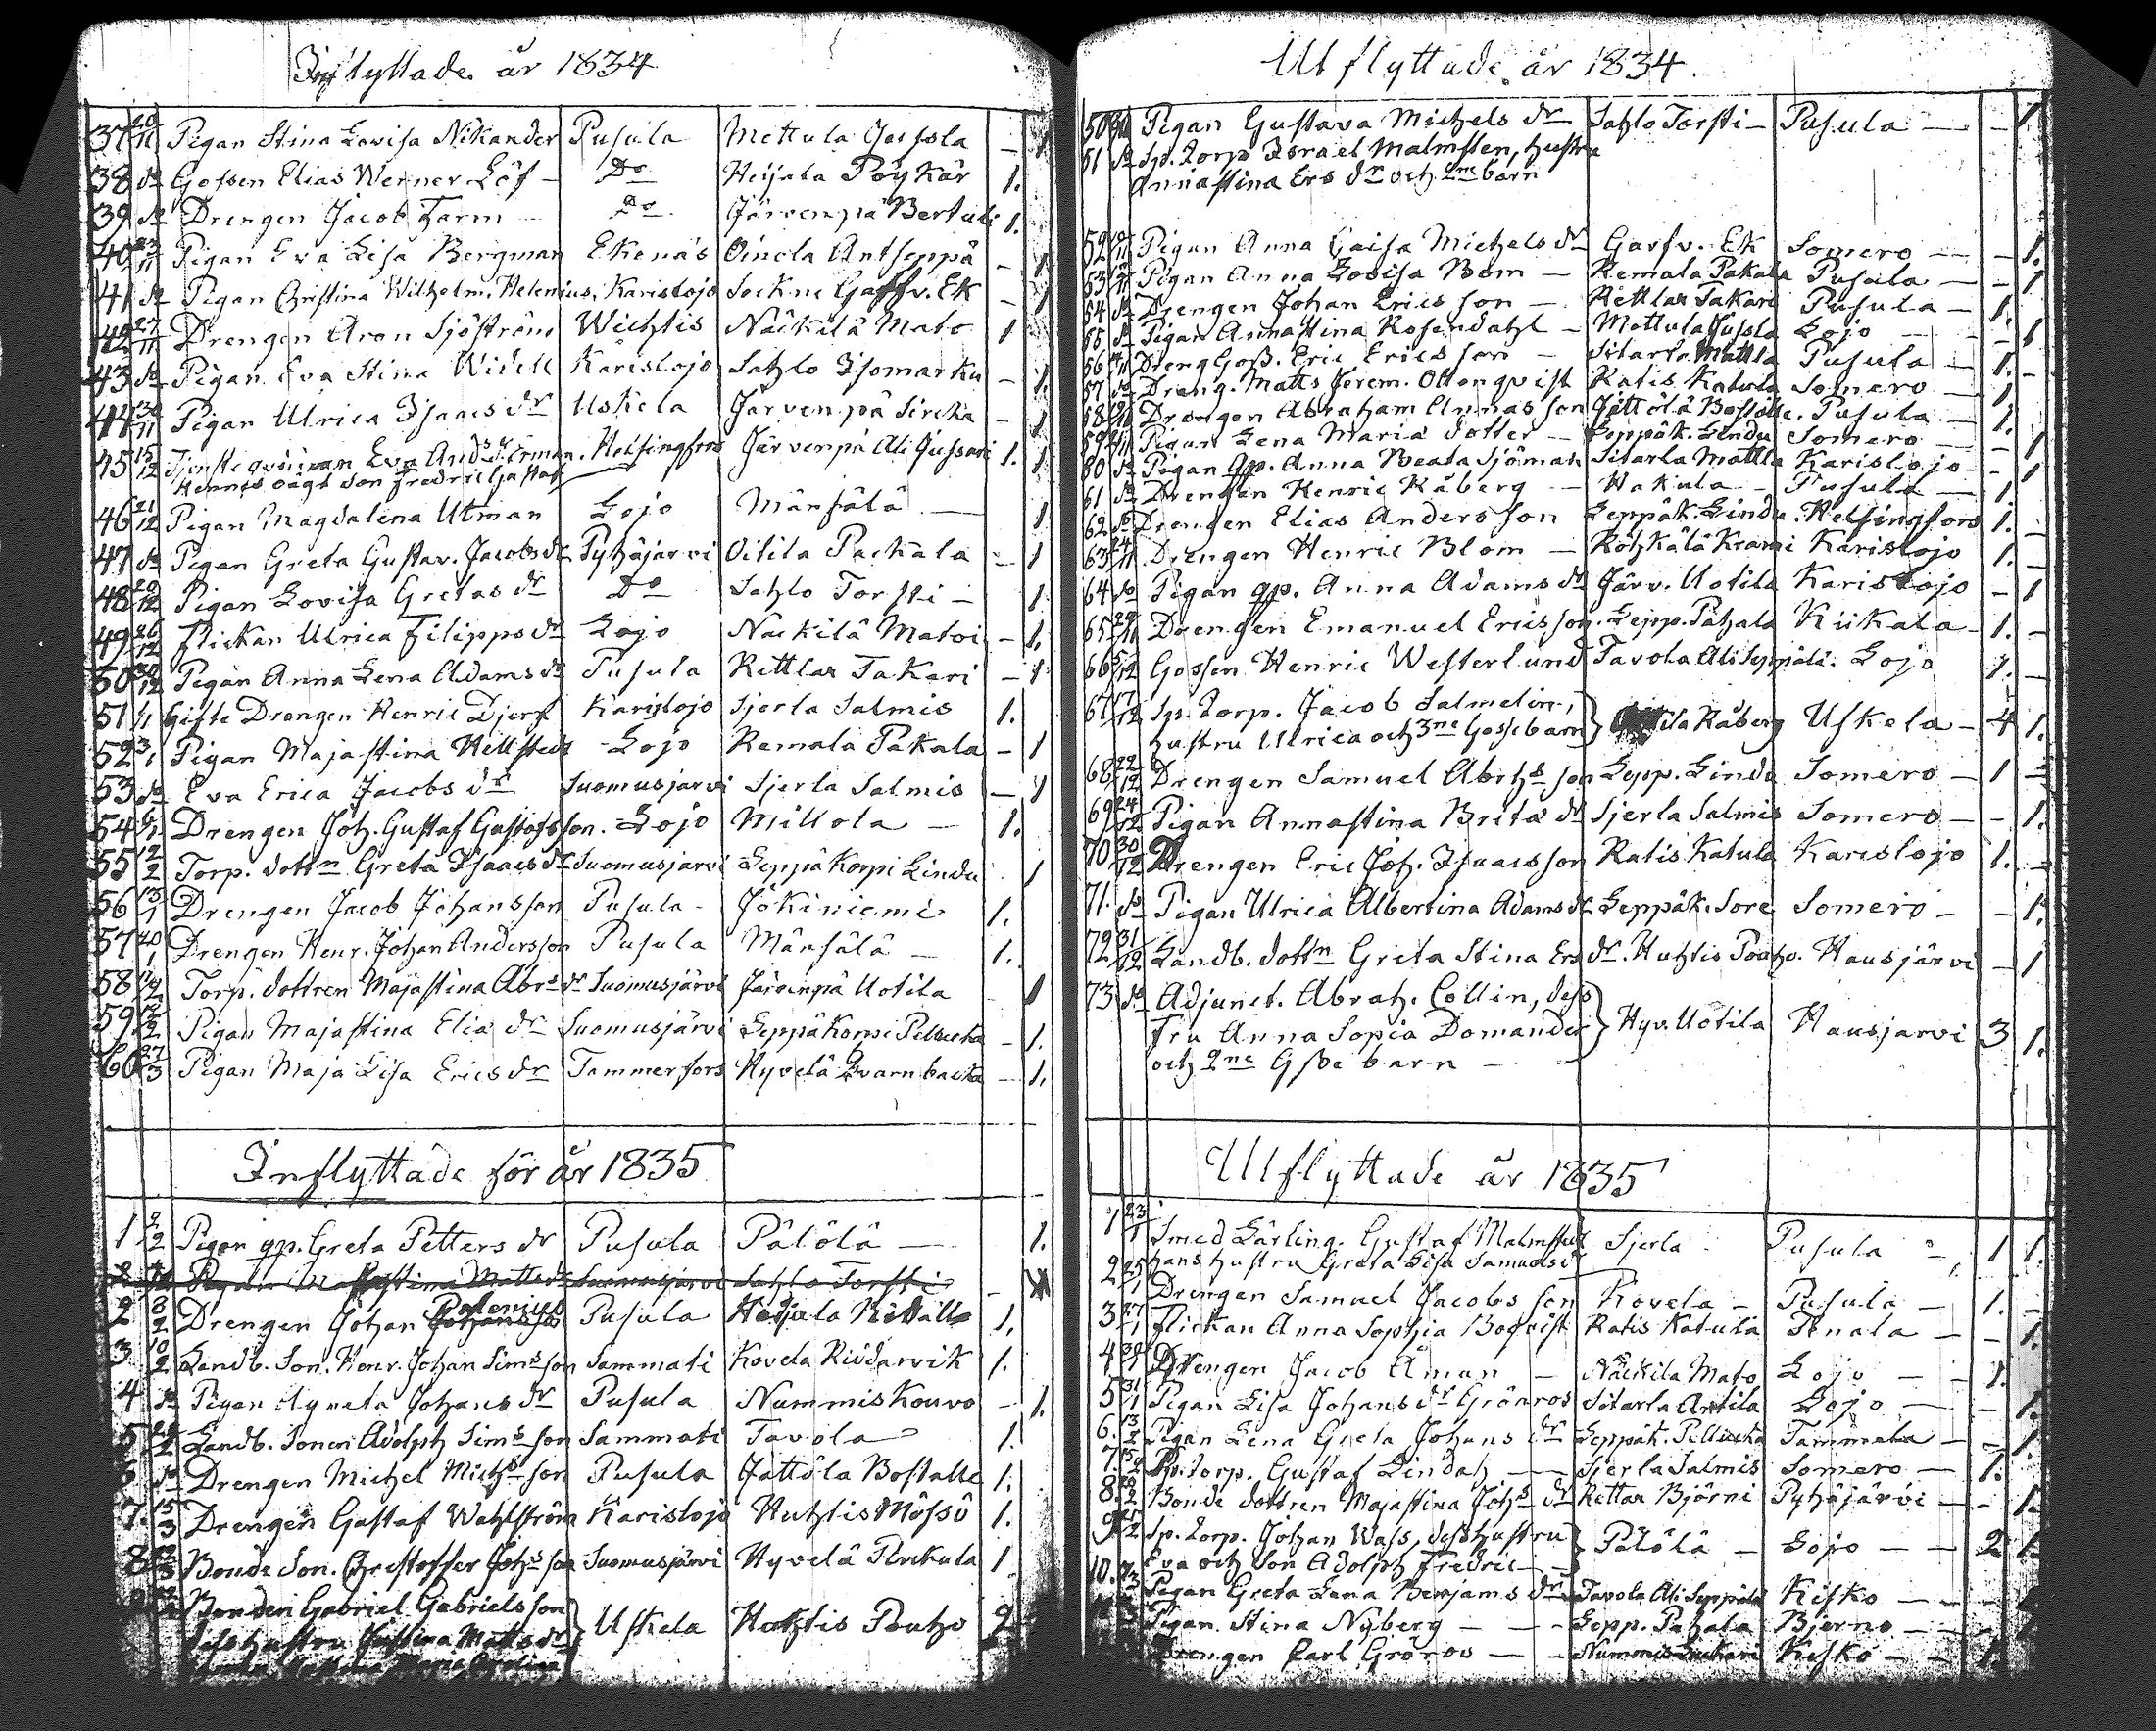 Inflyttade år 1834
37 20/11 Pigan Stina Lovisa Nikander Pusula Mettula Jussla - 1
38 do Gossen Elias Werner Löf - Do Heijala Pöykär 1.
39 do Drengen Jacob Farm Do Järvenpä Bertuli 1.
40 23/11 Pigan Eva Lisa Bergman Ekenäs Oinola Antseppä - 1
41 do Pigan Christina Wilhelm. Helenius. Karislojo Sockne Garfv. Ek - 1
42 27/11 Drengen Aron Sjöström Wichtis Näckilä Mato 1
43 do Pigan Eva Stina Widell Karislojo Sahlo Isomarku - 1.
44 30/11 Pigan Ulrica Isaacs dr Uskela Järvenpä Sircka - 1
45 15/12 Tjenste qvinnan Eva And. Helsingfors Järvenpä Ali Jussari 1. 1
Hennes oägt son Fredric Gustaf
46 21/12 Pigan Magdalena Utman Lojo Mänsälä - 1
47 do Pigan Greta Gustav. Jacobs dr Pyhäjärvi Oitila Packala - 1
48 29/12 Pigan Lovisa Gretas dr Do Sahlo Torsti - 1
49 26/12 Flickan Ulrica Filipps dr Lojo Näckilä Matoi - 1.
50 30/12 Pigan Anna Lena Adams dr Pusula Kettlar Takari - 1.
51 1/1 Gifte Drengen Henric Djerf Karislojo Sjerla Salmis 1.
52 3/1 Pigan Maja Stina Hellstedt Lojo Remala Pakala - 1
53 do Eva Erica Jacobs dr Suomusjärvi Sjerla Salmis - 1
54 6/1 Drengen Joh. Gustaf Gustafsson. Lojo Millola - 1.
55 12/2 Torp. dottn Greta Isaacs dr Suomusjärvi Leppäkorpi Lindu 1
56 13/1 Drengen Jacob Johansson Pusula - Jokiniemi 1.
57 20/1 Drengen Henr. Johan Andersson Pusula Mänsälä - 1.
58 14/2 Torp. dottren Majastina Abrs dr Suomusjärvi Järvenpä Uotila 1
59 Pigan Majastina Elia dr Suomusjärvi Leppäkorpi - 1.
60 27/3 Pigan Maja Lisa Erics dr Tammerfors Hyvelä Qvarnbacka - 1.
Inflyttade för år 1835
1 2/2 Pigan gp. Greta Petters dr Pusula Pälölä - 1.
2 Matts dr Suomusjärvi Sahlo Torsti - 1
2 8/2 Drengen Johan Polenius Pusula Heijala 1.
3 10/2 Landb. Son. Henr. Johan Sims son Sammati Kovela Riddarvik 1.
4 do Pigan Agneta Johans dr Pusula Nummis Kouvo - 1.
5 Landb. Sonen Adolph Sims son Sammati Tavola 1.
6 do Drengen Michel Michs son Pusula Jättölä Boställe 1.
7. 15/3 Drengen Gustaf Wahlström Karislojo Huhtis Mössö 1.
8 Bonde Son. Christoffer Johs son Suomusjärvi Hyvelä 1
9 Bonden Gabriel Gabrielsson
dess hustru Matts dr } Uskela Huhtis Pouho 2
Utflyttade år 1834.
50 Pigan Gustava Michels dr Sahlo Torsti - Pusula - - 1
51 do Sp. Torp. Israel Malmsten, hustru
Annastina Ers dr och 2ne barn
52 Pigan Anna Caisa Michels dr Garfv. Ek Somero - - 1.
53 Pigan Anna Lovisa Bom - Remala Pakala Pusula - - 1
54 do Drengen Johan Ericsson - Kettlar Takari Pusula - 1.
55 do Pigan Annastina Rosendahl - Mettula Jussla Lojo - - 1
56 Dreng Goss. Eric Ericsson - Sitarla Mattla Pusula - 1.
57 do Dreng. Matts Jerem. Ottonqvist Ratis Katula Somero - 1
58 Drengen Abraham Annas son Jättölä Boställe. Pusula - 1.
59 Pigan Lena Maria dotter - Leppäk. Lindu Somero - - 1
60 do Pigan gp. Anna Beata Sjöman Sitarla Mattla Karislojo - - 1
61 do Drengen Henric Råberg - Hakula - Pusula - 1
62 do Drengen Elias Andersson Leppäk. Lindu. Helsingfors 1. -
63 Drengen Henric Blom - Röhkälä Krami Karislojo 1. -
64 do Pigan gp. Anna Adams dr Järv. Uotila Karislojo - 1
65 29/11 Drengen Emanuel Ericsson. Lepp. Pahala Kiikala - 1. -
66 Gossen Henric Westerlund Tavola Ali Seppälä. Lojo 1. -
67 17/12 Sp. Torp. Jacob Salmelin,
hustru Ulrica och 3ne Gossebarn } Råberg Uskela - 4 1.
68 22/12 Drengen Samuel Abrhs son Lepp. Lindu Somero - 1 -
69 24/12 Pigan Annastina Brita dr Sjerla Salmis Somero - - 1.
70 30/12 Drengen Eric Joh. Isaacsson Ratis Katula Karislojo 1. -
71. do Pigan Ulrica Albertina Adams dr Leppäk. Sore Somero - - 1.
72 31/12 Landb. dottn Greta Stina Ers dr. Huhtis Pouho. Hausjärvi - 1
73 do Adjunct. Abrah. Collin, dess
fru Anna Sopia Domander } Hyv. Uotila Hausjarvi 3 1.
och 2ne Gsse barn -
Utflyttade år 1835
1 23/1 Smed Lärling. Gustaf Malmstedt Sjerla Pusula - 1 1.
hans hustru Greta Lisa Samuels dr
2 25/1 Drengen Samuel Jacobs son Kovela - Pusula - 1. -
3 27/1 Flickan Anna Sophia Boqvist Ratis Katula Tenala - - 1.
4 Drengen Jacob Åman - Näckilä Mato Lojo - - 1.
5 31/1 Pigan Lisa Johans dr Grönros Sitarla Antila Lojo - - 1.
6. 13/2 Pigan Lena Greta Johans dr Leppäk. Tammela - - 1.
7. Sp. Torp. Gustaf Lindah - Sjerla Salmis Somero - 1.
8. Bonde dottren Majastina Johs dr Kettar Björni Pyhäjärvi - - 1.
9 Sp. Torp. Johan Wass, dess hustru
Eva och Son Adolph Fredric - } Pälölä - Lojo - - 2 1.
10. Pigan Greta Lena Benjams dr Tavola Ali Seppälä Kisko - -
Pigan Stina Nyberg - - - Lepp. Pahala Bjerno - -
Drengen Carl Gröros - - Nummis Kisko - - 1.